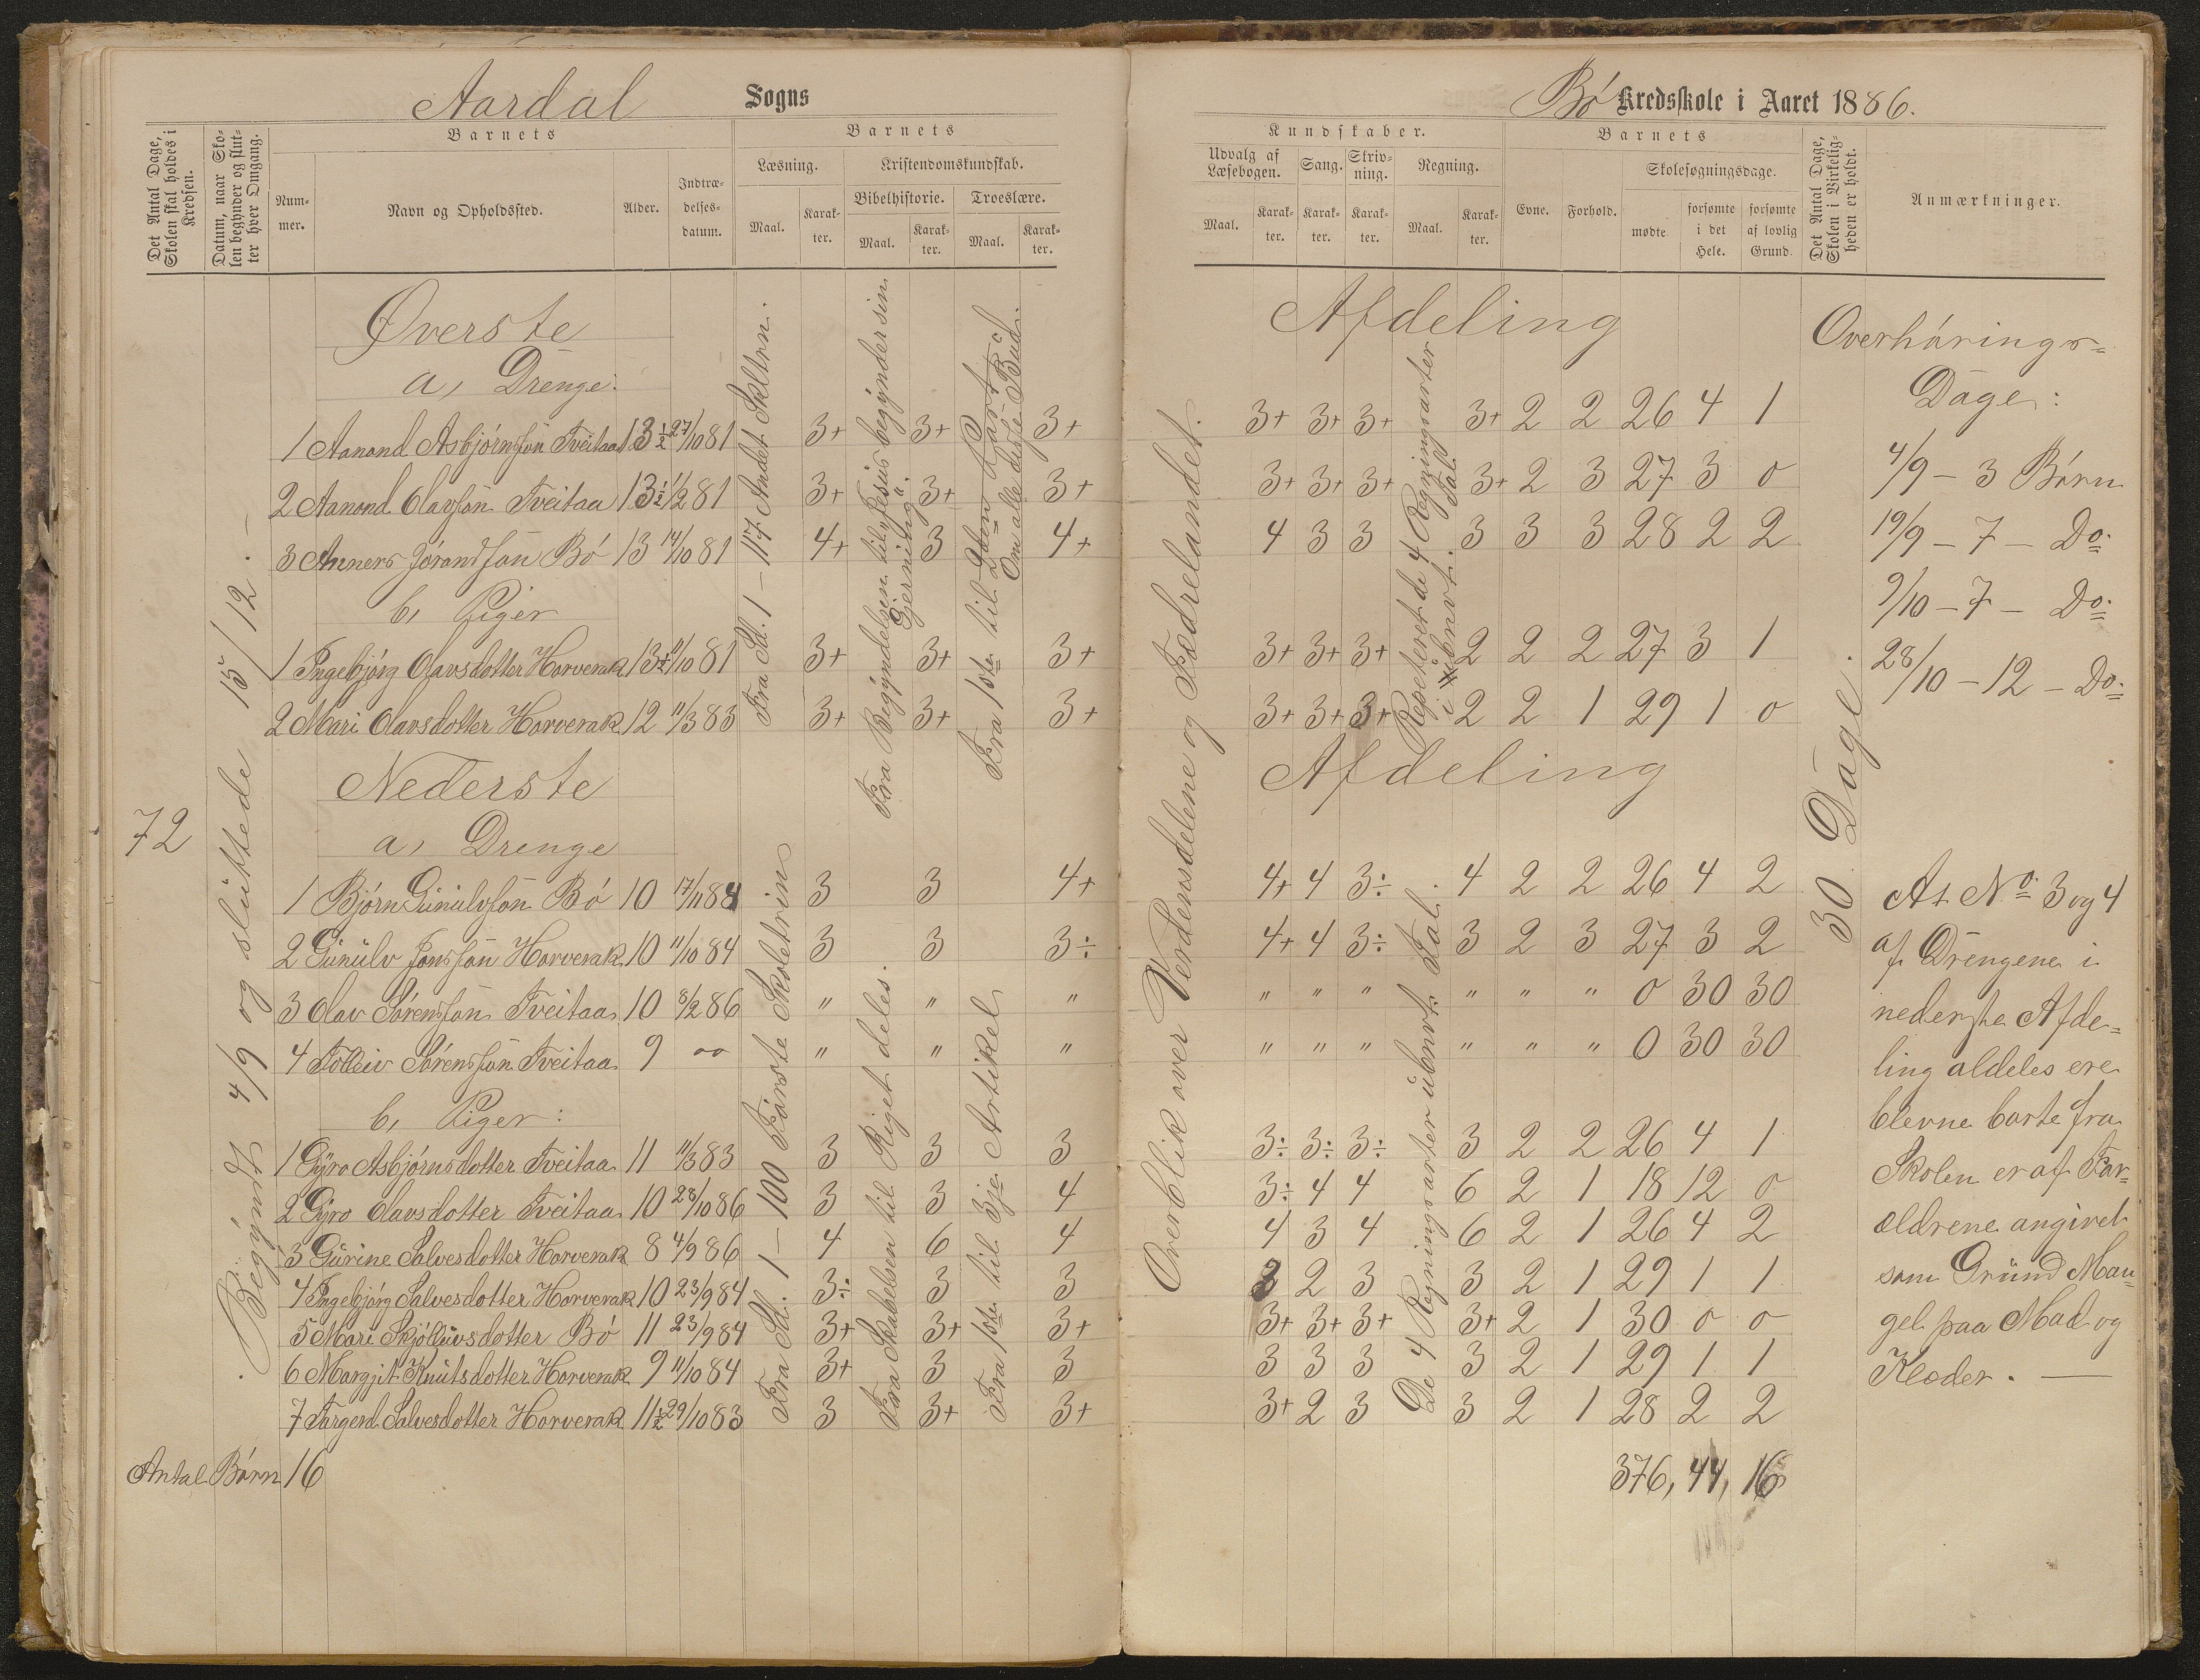 Aardal Sogns
Det Antal Dage, Skolen skal holdes i Kredsen.
Datum, naar Skolen begynder og slutter hver Omgang.
Barnets
Nummer.
Navn og Opholdssted.
Alder.
Indtrædelsesdatum.
Barnets
Læsning.
Maal.
Karakter.
Kristendomskundskab.
Bibelhistorie.
Maal.
Karakter.
Troeslære.
Maal.
Karakter.
72
Begyndt 4/9 og sluttede 15/12.
Øverste
a, Drenge:
1 Aanond Asbjørnssøn Tveitaa 13½ 27/10 81 3+ 3+ 3+
2 Aanond Olavssøn Tveitaa 13½ 1/2 81 3+ 3+ 3+
3 Anners Jørandssøn Bø 13 14/10 81 4+ 3 4+
b, Piger
1 Ingebjørg Olavsdotter Horverak 13½ 11/10 81 3+ 3+ 3+
2 Mari Olavsdotter Horverak 12 11/3 83 3+ 3+ 3+
Fra St. 1 – 117 Andet Skltrn.
Fra Begyndelsen til Jesus begynder sin Gjerning.
Fra 1ste til 2den Part
Om alle disse Bud.
Nederste
a, Drenge
1 Bjørn Gunulvsøn Bø 10 17/11 84 3 3 4+
2 Gunulv Jonssøn Horverak 10 11/10 84 3 3 3÷
3 Olav Sørenssøn Tveitaa 10 8/2 86 " " "
4 Tolleiv Sørenssøn Tveitaa 9 oo " " "
b, Piger:
1 Gyro Asbjørnsdotter Tveitaa 11 11/3 83 3 3 3
2 Gyro Olavsdotter Tveitaa 10 28/10 86 3 3 4
3 Gurine Salvesdotter Horverak 8 4/9 86 4 6 4
4 Ingebjørg Salvesdotter Horverak 10 23/9 84 3÷ 3 3
5 Mari Skjølluvsdotter Bø 11 23/9 84 3+ 3+ 3+
6 Margjit Knutsdotter Horverak 9 11/10 84 3+ 3 3
7 Torgerd Salvesdotter Horverak 11½ 29/10 83 3 3+ 3+
Fra St. 1 – 100 Første Skoletrin
Fra Skabelsen til Riget deles.
Fra 1ste til 3je Artikel
Antal Børn 16
Bø Kredsskole i Aaret 1886.
Kundskaber.
Udvalg af Læsebogen.
Maal.
Karakter.
Sang.
Karakter.
Skrivning.
Karakter.
Regning.
Maal.
Karakter.
Barnets
Evne.
Forhold.
Skolesøgningsdage.
mødte
forsømte i det Hele.
forsømte af lovlig Grund.
Det Antal Dage, Skolen i Virkeligheden er holdt.
Anmærkninger.
Overblik over Verdensdelene og Fædrelandet.
Afdeling
3+ 3+ 3+ 3+ 2 2 26 4 1
3+ 3+ 3+ 3+ 2 3 27 3 0
4 3 3 3 3 3 28 2 2
3+ 3+ 3+ 2 2 2 27 3 1
3+ 3+ 3+ 2 2 1 29 1 0
Repeteret de 4 Regningsarter i ubenvt. Tal
Afdeling
4+ 4 3÷ 4 2 2 26 4 2
4+ 4 3÷ 3 2 3 27 3 2
" " " " " " 0 30 30
" " " " " " 0 30 30
3÷ 3÷ 3÷ 3 2 2 26 4 1
3÷ 4 4 6 2 1 18 12 0
4 3 4 6 2 1 26 4 2
3 2 3 3 2 1 29 1 1
3+ 3+ 3+ 3+ 2 1 30 0 0
3 3 3 3 2 1 29 1 1
3+ 2 3 3 2 1 28 2 2
De 4 Regningsarter i ubenvt. Tal.
376, 44, 16
30 Dage.
Overhørings-
Dage:
4/9 – 3 Børn
19/9 – 7 – Do.
9/10 – 7 – Do.
28/10 – 12 – Do.
At No. 3 og 4
af Drengene i
nederste Afde-
ling aldeles ere
blevne borte fra
Skolen er af For-
ældrene angivet
som Grund Man-
gel paa Mad og
Klæder. —